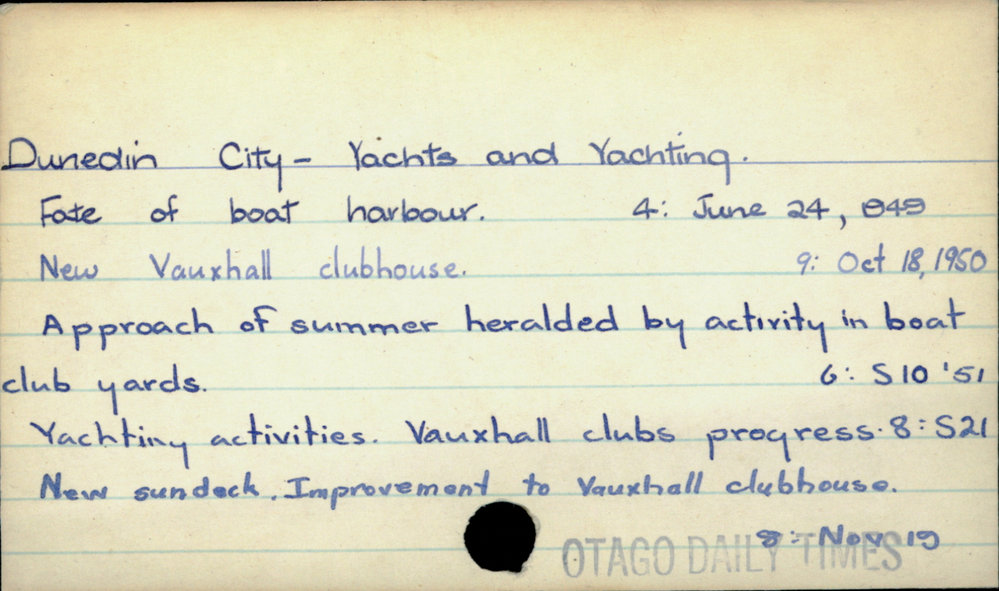 Dunedin City - Yachts and Yachting.
Fate of boat harbour. 4: June 24, 1949
New Vauxhall clubhouse. 9: Oct 18, 1950
Approach of summer heralded by activity in boat
club yards. 6: S 10 '51
Yachting activities. Vauxhall clubs progress. 8: S21
New sundeck. Improvement to Vauxhall clubhouse.
8: Nov 19
OTAGO DAILY TIMES